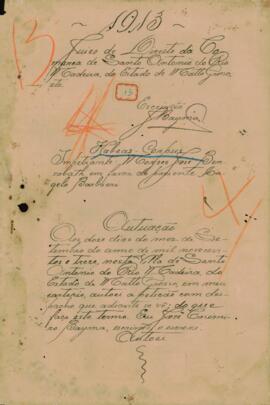 1913
Juizo de Direito da Co-
marca de Santo Antonio do Rio
Madeira, do Estado de Matto Grosso
Escrivão
Bayma
Habeas-Corpus
Impetrante Major José
em favor do paciente
Barbosa
Autuação
Aos dose dias do mez de Se-
tembro do anno de mil novecen-
tos e treze, nesta Villa de Santo
Antonio do Rio Madeira, do
Estado de Matto Grosso, em meu
cartorio, autoei a petição com des-
pacho que adiante se vê; do que
faço este termo. Eu José
Bayma, escrivão o escrevi.
Autoei